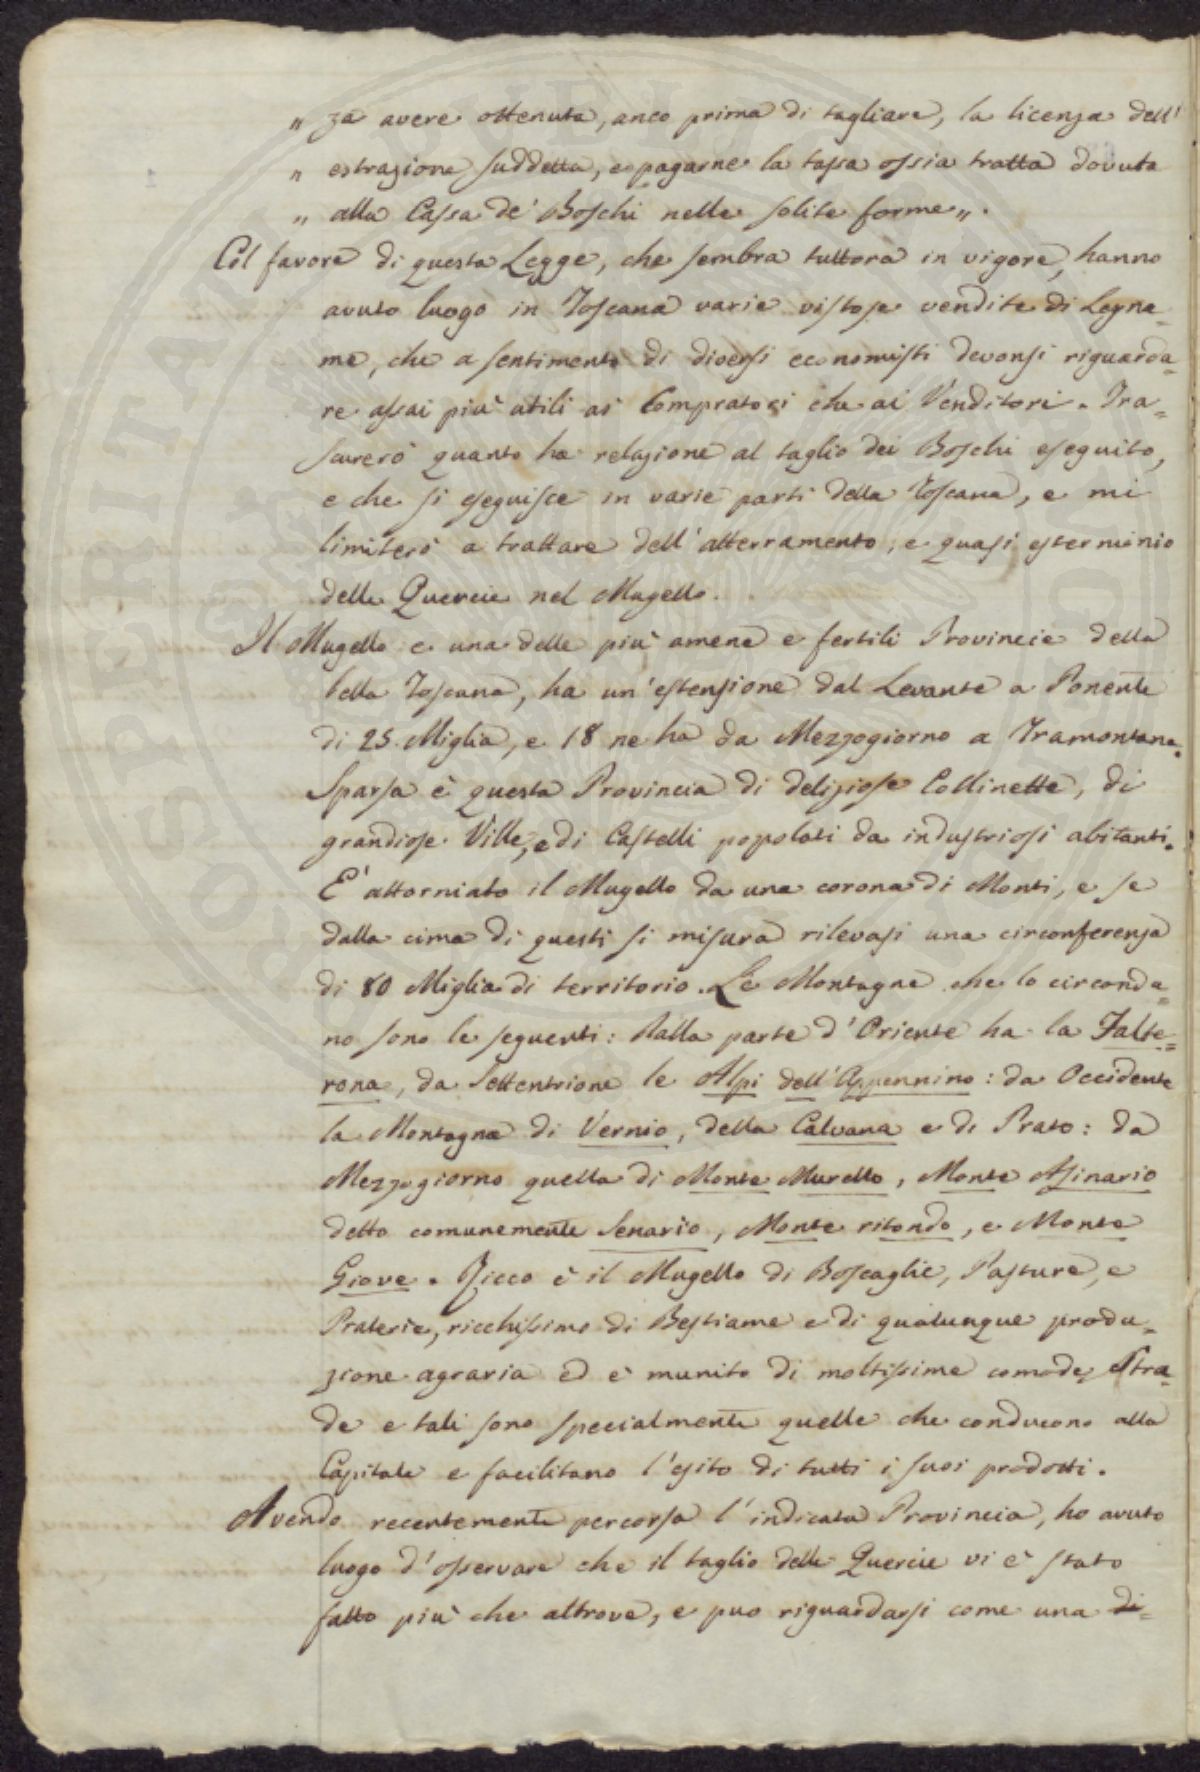 „ za avere ottenuta, anco prima di tagliare, la licenza dell'
„ estrazione suddetta, e pagarne la tassa ossia tratta dovuta
„ alla Cassa de' Boschi nelle solite forme„.
Col favore di questa Legge, che sembra tuttora in vigore, hanno
avuto luogo in Toscana varie vistose vendite di Legna=
me, che a sentimento di diversi economisti devonsi riguarda=
re assai più utili ai Compratori che ai Venditori. Tra=
scurerò quanto ha relazione al taglio dei Boschi eseguito,
e che si eseguisce in varie parti della Toscana, e mi
limiterò a trattare dell'atterramento, e quasi esterminio
delle Quercie nel Mugello.
Il Mugello e una delle più amene e fertili Provincie della
bella Toscana, ha un'estensione dal Levante a Ponente
di 25 Miglia, e 18 ne ha da Mezzogiorno a Tramontana.
Sparsa è questa Provincia di deliziose Collinette, di
grandiose Ville, e di Castelli popolati da industriosi abitanti.
E' attorniato il Mugello da una corona di Monti, e se
dalla cima di questi si misura rilevasi una circonferenza
di 80 Miglia di territorio. Le Montagne che lo circonda=
no sono le seguenti: Dalla parte d'Oriente ha la Falte=
rona, da Settentrione le Alpi dell'Appennino: da Occidente
la Montagna di Vernio, della Calvana e di Prato: da
Mezzogiorno quella di Monte Murello, Monte Asinario
detto comunemente Senario, Monte ritondo, e Monte
Giove. Ricco è il Mugello di Boscaglie, Pasture, e
Praterie, ricchissimo di Bestiame e di qualunque produ=
zione agraria ed è munito di moltissime comode Stra=
de e tali sono specialmente quelle che conducono alla
Capitale e facilitano l'esito di tutti i suoi prodotti.
Avendo recentemente percorsa l'indicata Provincia, ho avuto
luogo d'osservare che il taglio delle Quercie vi è stato
fatto più che altrove, e puo riguardarsi come una di=
PROSPERITATI